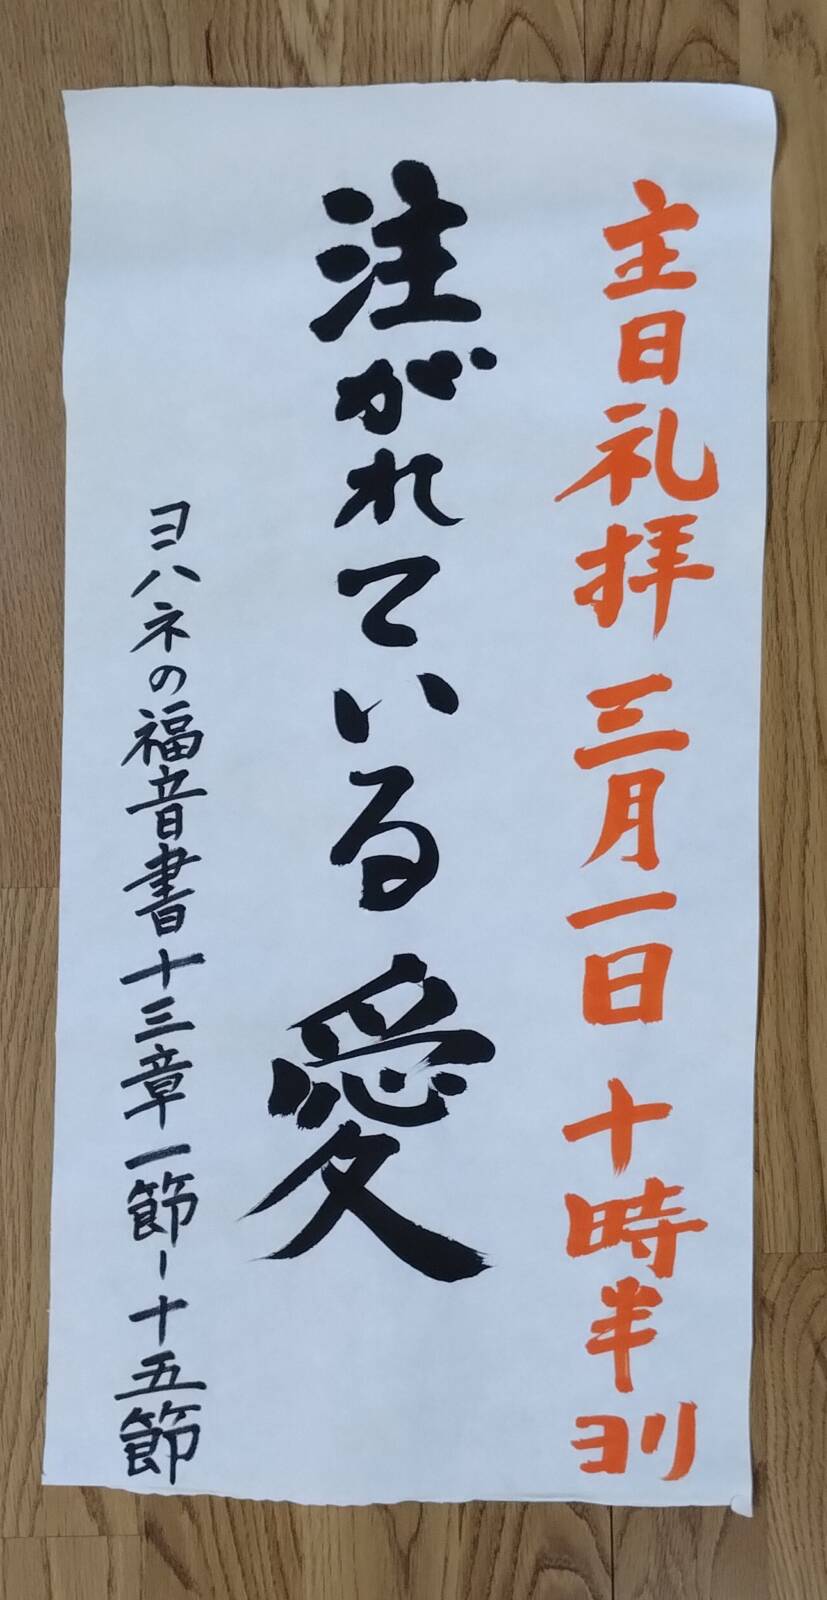 主日礼拝 三月一日 十時半ヨリ
注がれている愛
ヨハネの福音書十三章一節ー十五節